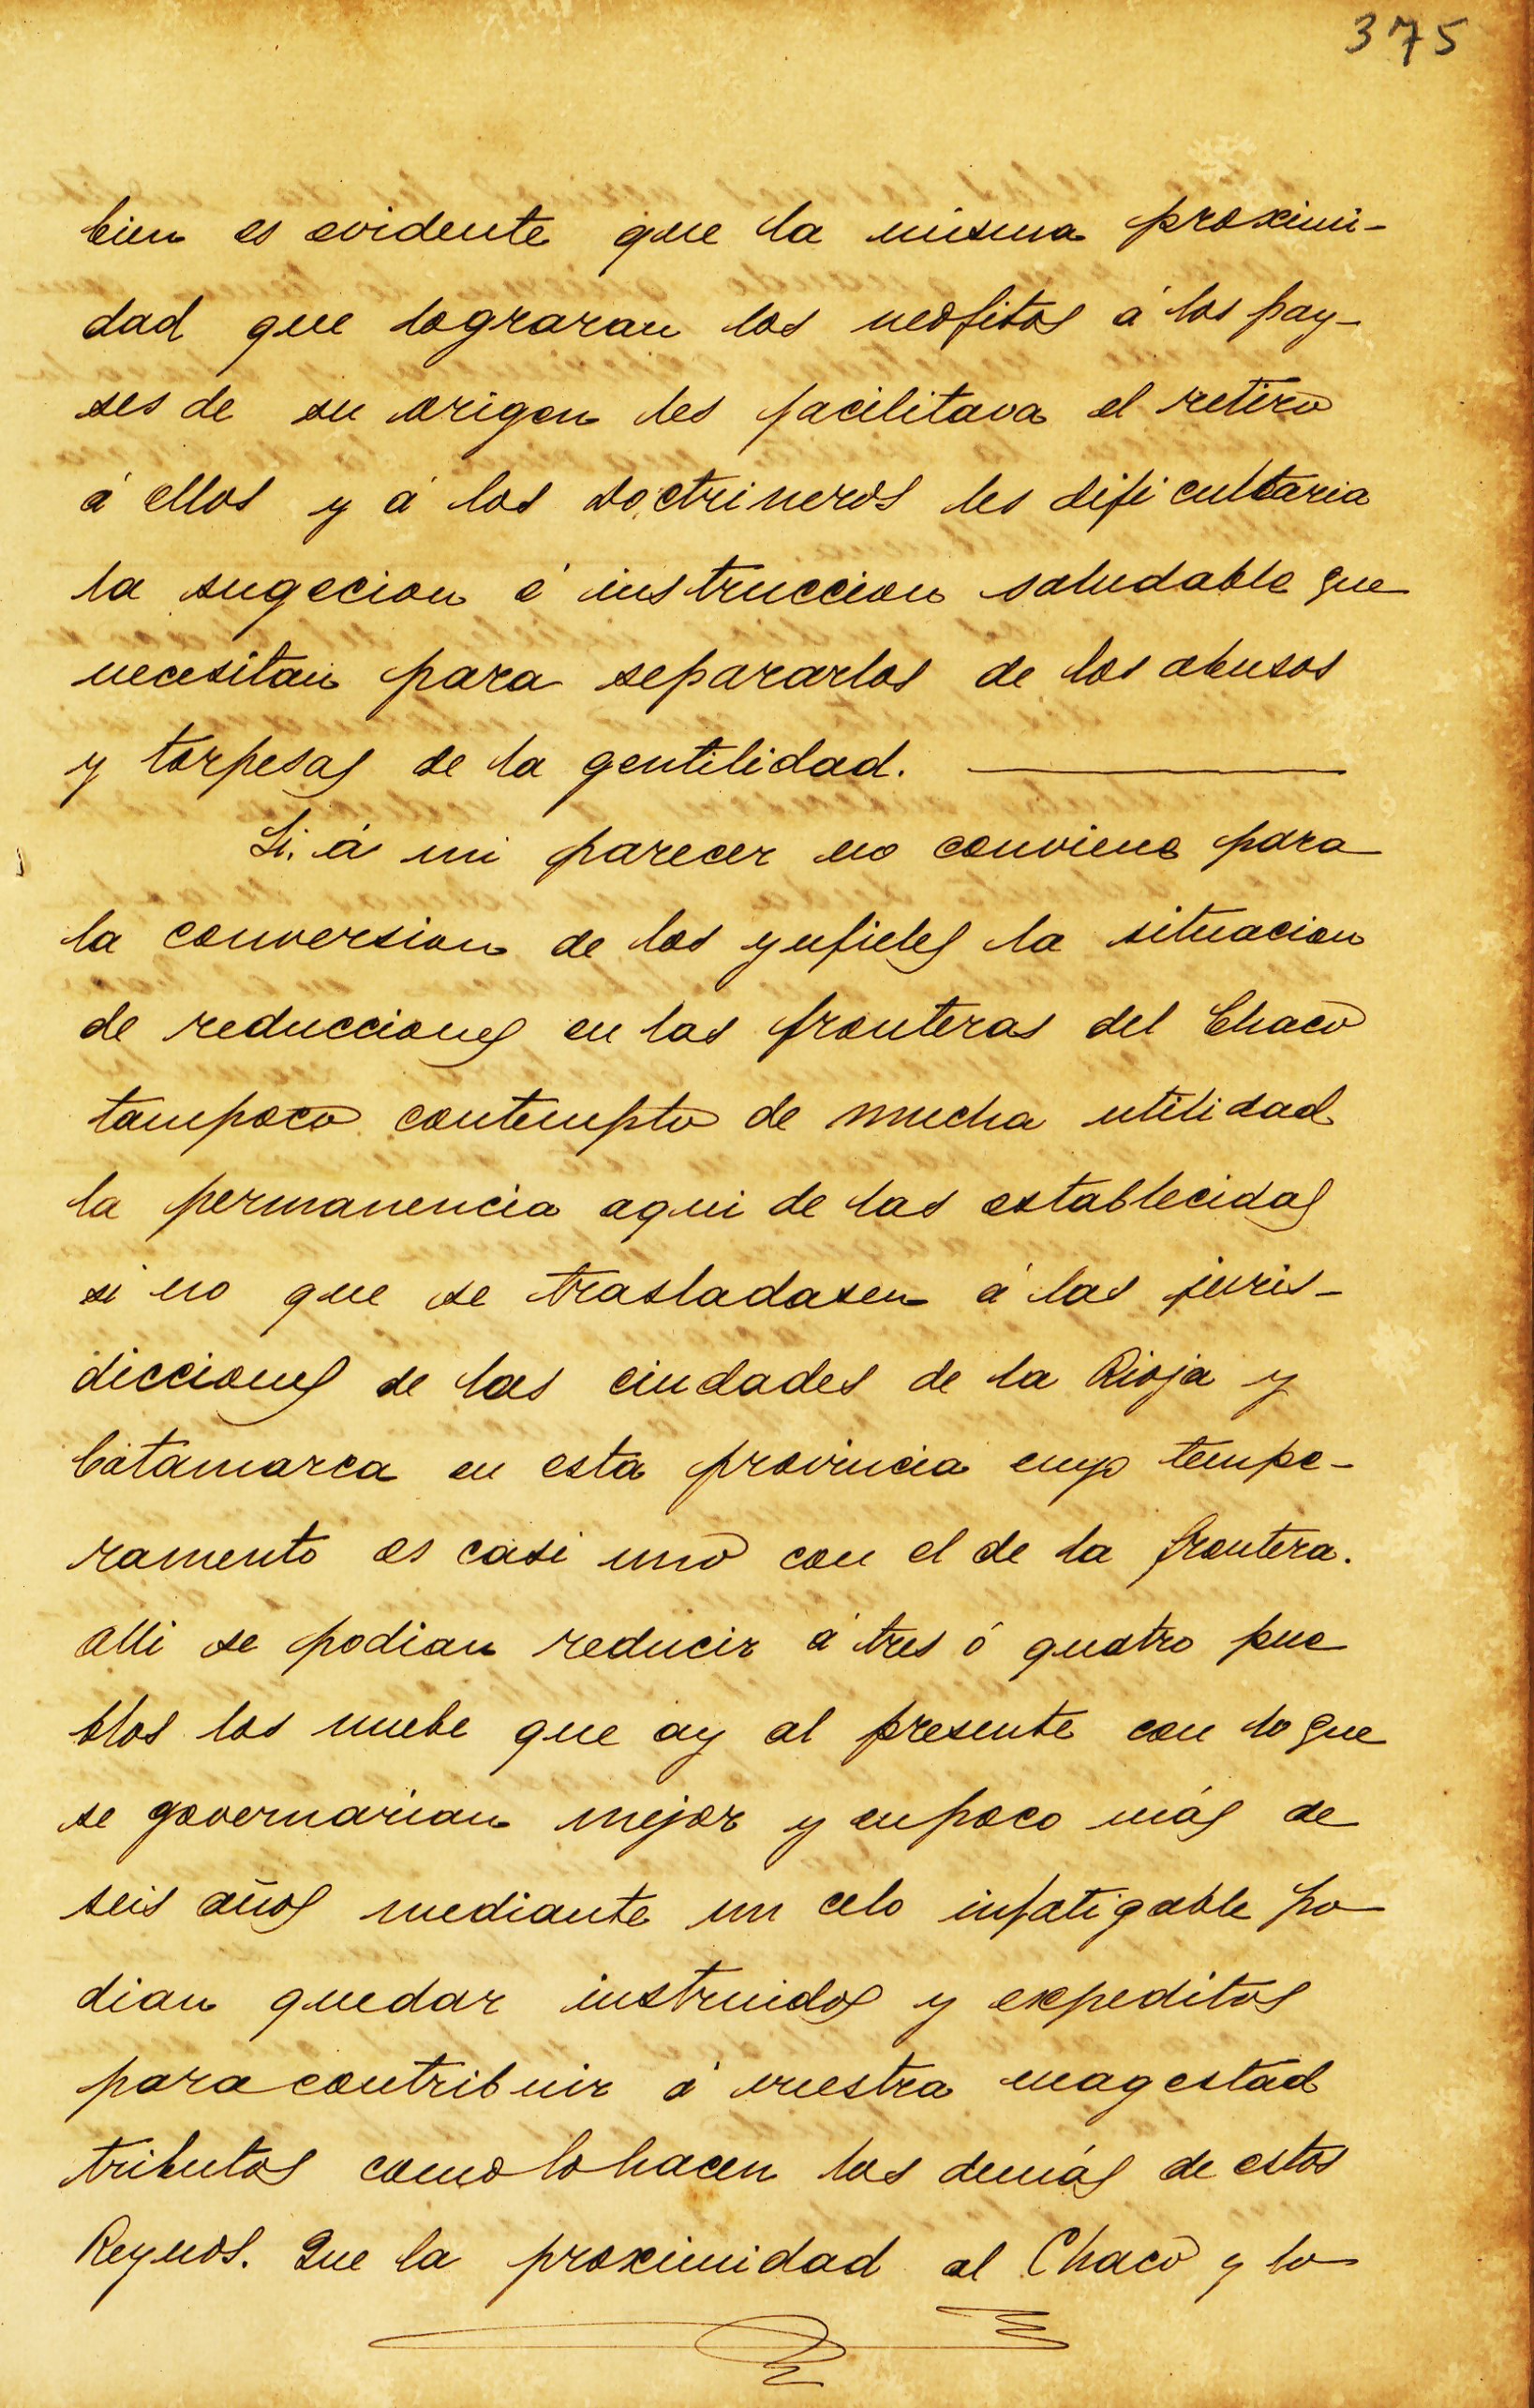 375
bien es evidente que la misma proximi-
dad que lograran los neofitos á los pay-
ses de su origen les facilitava el retiro
á ellos y á los Doctrineros les dificultaria
la sugecion é instruccion saludable que
necesitan para separarlos de los abusos
y torpesas de la gentilidad.
Si á mi parecer no conviene para
la conversion de los ynfieles la situacion
de reducciones en las fronteras del Chaco
tampoco contemplo de mucha utilidad
la permanencia aqui de las establecidas
si no que se trasladasen á las juris-
dicciones de las ciudades de la Rioja y
Catamarca en esta provincia cuyo tempe-
ramento es casi uno con el de la frontera.
alli se podian reducir á tres ó quatro pue
blos los nuebe que ay al presente con lo que
se governarian mejor y en poco más de
seis años mediante un celo infatigable po
dian quedar instruidos y expeditos
para contribuir á vuestra magestad
tributos como lo hacen los demás de estos
Reynos. Que la proximidad al Chaco y lo